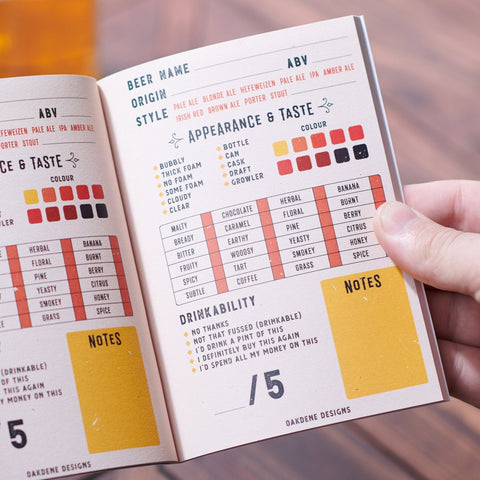 ABV
HEFEWEIZEN PALE ALE IPA AMBER ALE
PORTER STOUT
CE & TASTE
COLOUR
HERBAL BANANA
FLORAL BURNT
PINE BERRY
YEASTY CITRUS
SMOKEY HONEY
GRASS SPICE
NOTES
(DRINKABLE)
OF THIS
THIS AGAIN
MY MONEY ON THIS
/5
OAKDENE DESIGNS
BEER NAME
ORIGIN ABV
STYLE PALE ALE BLONDE ALE HEFEWEIZEN PALE ALE IPA AMBER ALE
IRISH RED BROWN ALE PORTER STOUT
APPEARANCE & TASTE
BUBBLY BOTTLE COLOUR
THICK FOAM CAN
NO FOAM CASK
SOME FOAM DRAFT
CLOUDY GROWLER
CLEAR
MALTY CHOCOLATE HERBAL BANANA
BREADY CARAMEL FLORAL BURNT
BITTER EARTHY PINE BERRY
FRUITY WOODSY YEASTY CITRUS
SPICY TART SMOKEY HONEY
SUBTLE COFFEE GRASS SPICE
DRINKABILITY NOTES
NO THANKS
NOT THAT FUSSED (DRINKABLE)
I'D DRINK A PINT OF THIS
I DEFINITELY BUY THIS AGAIN
I'D SPEND ALL MY MONEY ON THIS
/5
OAKDENE DESIGNS